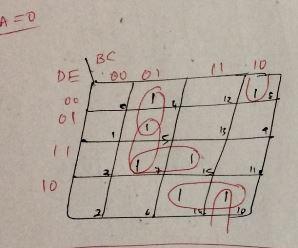 A=0
BC
DE 00 01 11 10
00 0 1 4 12 1 8
01 1 1 5 13 9
11 3 1 7 1 15 11
10 2 6 1 14 1 10